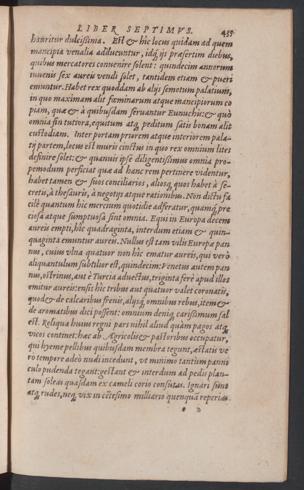 LIBER SEPTIMVS. 435
hauritur dulcissima. Est & hic locus quidam ad quem
mancipia venalia adducuntur, idq; ijs præsertim diebus,
quibus mercatores convenire solent: quindecim annorum
iuvenis sex aureis vendi solet, tantidem etiam & pueri
emuntur. Habet rex quoddam ab alijs semotum palatium,
in quo maximam alit fœminarum atque mancipiorum co
piam, quæ & à quibusdam servantur Eunuchis: & quò
omnia sin tutiora, equitum atq; peditum satis bonam alit
custodiam. Inter portam priorem atque interiorem pala-
tij partem, locus est muris cinctus in quo rex omnium lites
definire solet: & quamvis ipse diligentissimus omnia pro-
pemodum perficiat quæ ad hanc rem pertinere videntur,
habet tamen & suos conciliarios, aliosq; quos habet à se-
cretis, à thesauris, à negotijs atque rationibus. Non dictu fa
cilè quantum hic mercium quotidie adferatur, quamq; pre
ciosa atque sumptuosa sint omnia. Equi in Europa decem
aureis empti, hic quadraginta, interdum etiam & quin-
quaginta emuntur aureis. Nullus est tam vilis Europæ pan
nus, cuius vlna quatuor non hic ematur aureis, qui verò
aliquantulum subtilior est, quindecim: Venetus autem pan
nus, ostrinus, aut è Turcia aductus, triginta ferè apud illos
emitur aureis: ensis hic tribus aut quatuor valet coronatis,
quod & de calcaribus frenis, alijsq; omnibus rebus, item &
de aromatibus dici possent: omnium denig carissimum sal
est. Reliqua huius regni pars nihil aliud quàm pagos atq;
vicos continet: hæc ab Agricolis & pastoribus occupatur,
qui hyeme pellibus quibusdam membra tegunt, æstatis ve
ro tempore adeò nudi incedunt, vt minimo tantum panni
culo pudenda tegant: gestant & interdum ad pedis plan-
tam soleas quasdam ex cameli corio consutas. Ignari sunt
atq; rudes, neq; vix in cẽtesimo milliario quenquā reperias